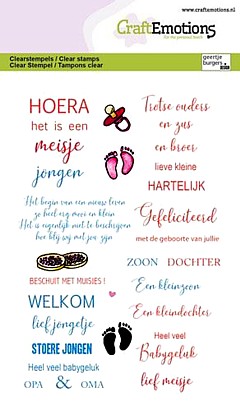 CraftEmotions
www.craftemotions.nl
Clearstempels / Clear stamps
Clear Stempel / Tampons clear
geertje
burgers
HOERA
het is een
meisje
jongen
Het begin van een nieuw leven
zo heel erg mooi en klein
Het is eigenlijk niet te beschrijven
hoe blij wij met jou zijn
BESCHUIT MET MUISJES !
WELKOM
lief jongetje
STOERE JONGEN
Heel veel babygeluk
OPA & OMA
Trotse ouders
en zus
en broer
lieve kleine
HARTELIJK
Gefeliciteerd
met de geboorte van jullie
ZOON DOCHTER
Een kleinzoon
Een kleindochter
Heel veel
Babygeluk
lief meisje